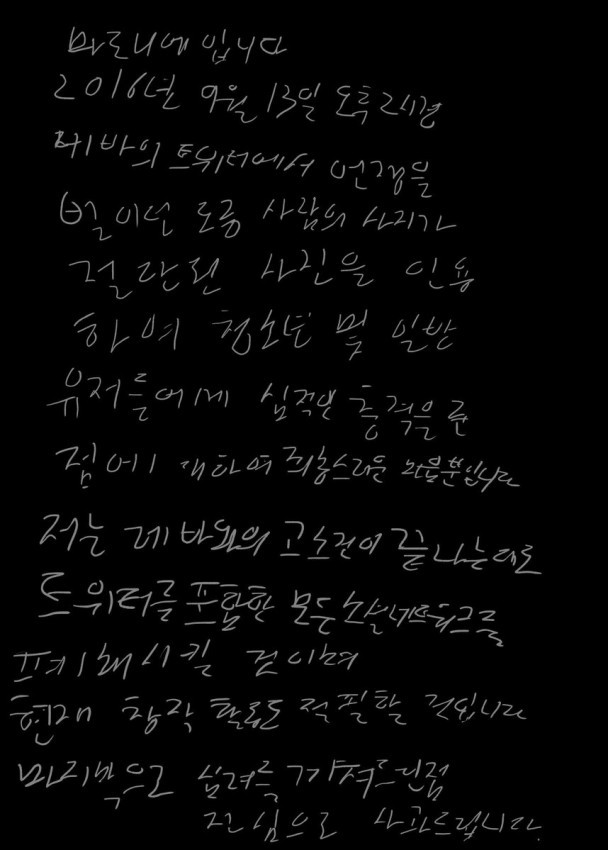 마로니에입니다
2016년 9월 13일 오후 2시경
레바의 트위터에서 언쟁을
벌이던 도중 사람의 사지가
절단된 사진을 인용
하여 청소년 및 일반
유저들에게 심적인 충격을 준
점에 대하여 죄송스러운 마음뿐입니다
저는 레바와의 고소건이 끝나는대로
트위터를 포함한 모든 소셜네트워크를
폐쇄시킬 것이며
현재 창작 활동도 절필할 것입니다
마지막으로 심려를 끼쳐드린점
진심으로 사과드립니다.